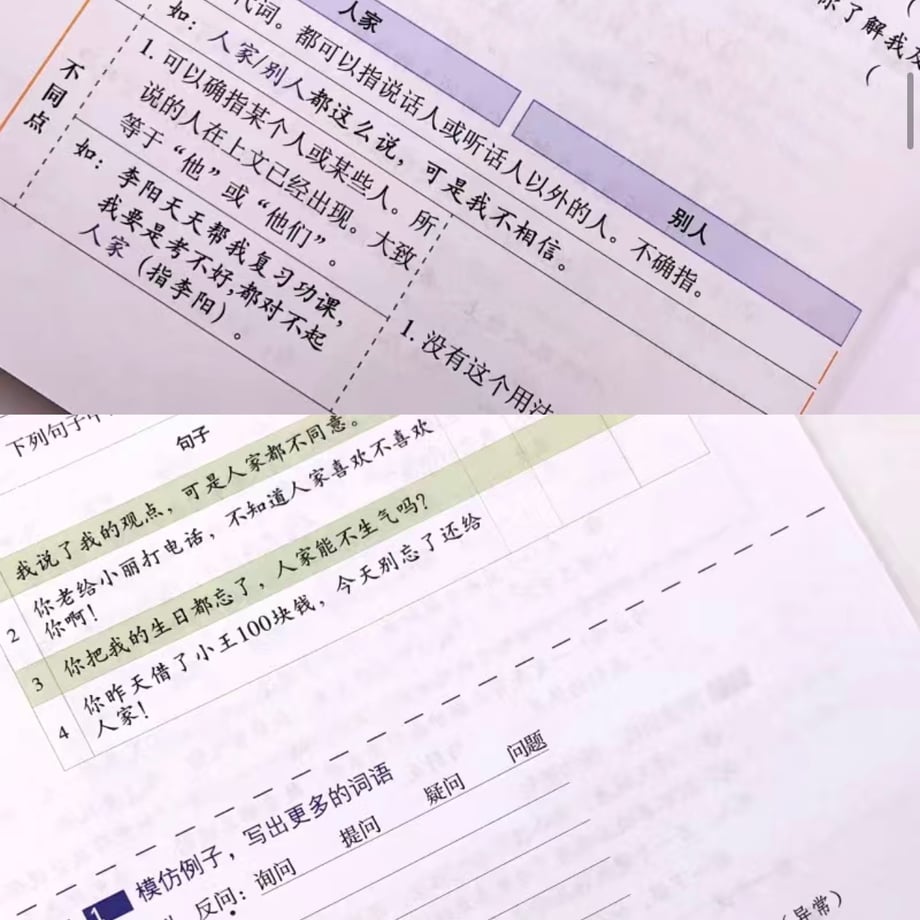 人家
别人
代词。都可以指说话人或听话人以外的人。不确指。
如：人家/别人都这么说，可是我不相信。
不同点
1. 可以确指某个人或某些人。所
说的人在上文已经出现。大致
等于“他”或“他们”。
1. 没有这个用法
如：李阳天天帮我复习功课，
我要是考不好，都对不起
人家（指李阳）。
你了解我
(
下列句子中
句子
我说了我的观点，可是人家都不同意。
2 你老给小丽打电话，不知道人家喜欢不喜欢
你啊！
3 你把我的生日都忘了，人家能不生气吗？
4 你昨天借了小王100块钱，今天别忘了还给
人家！
1 模仿例子，写出更多的词语
反问：询问 提问 疑问 问题
异常）